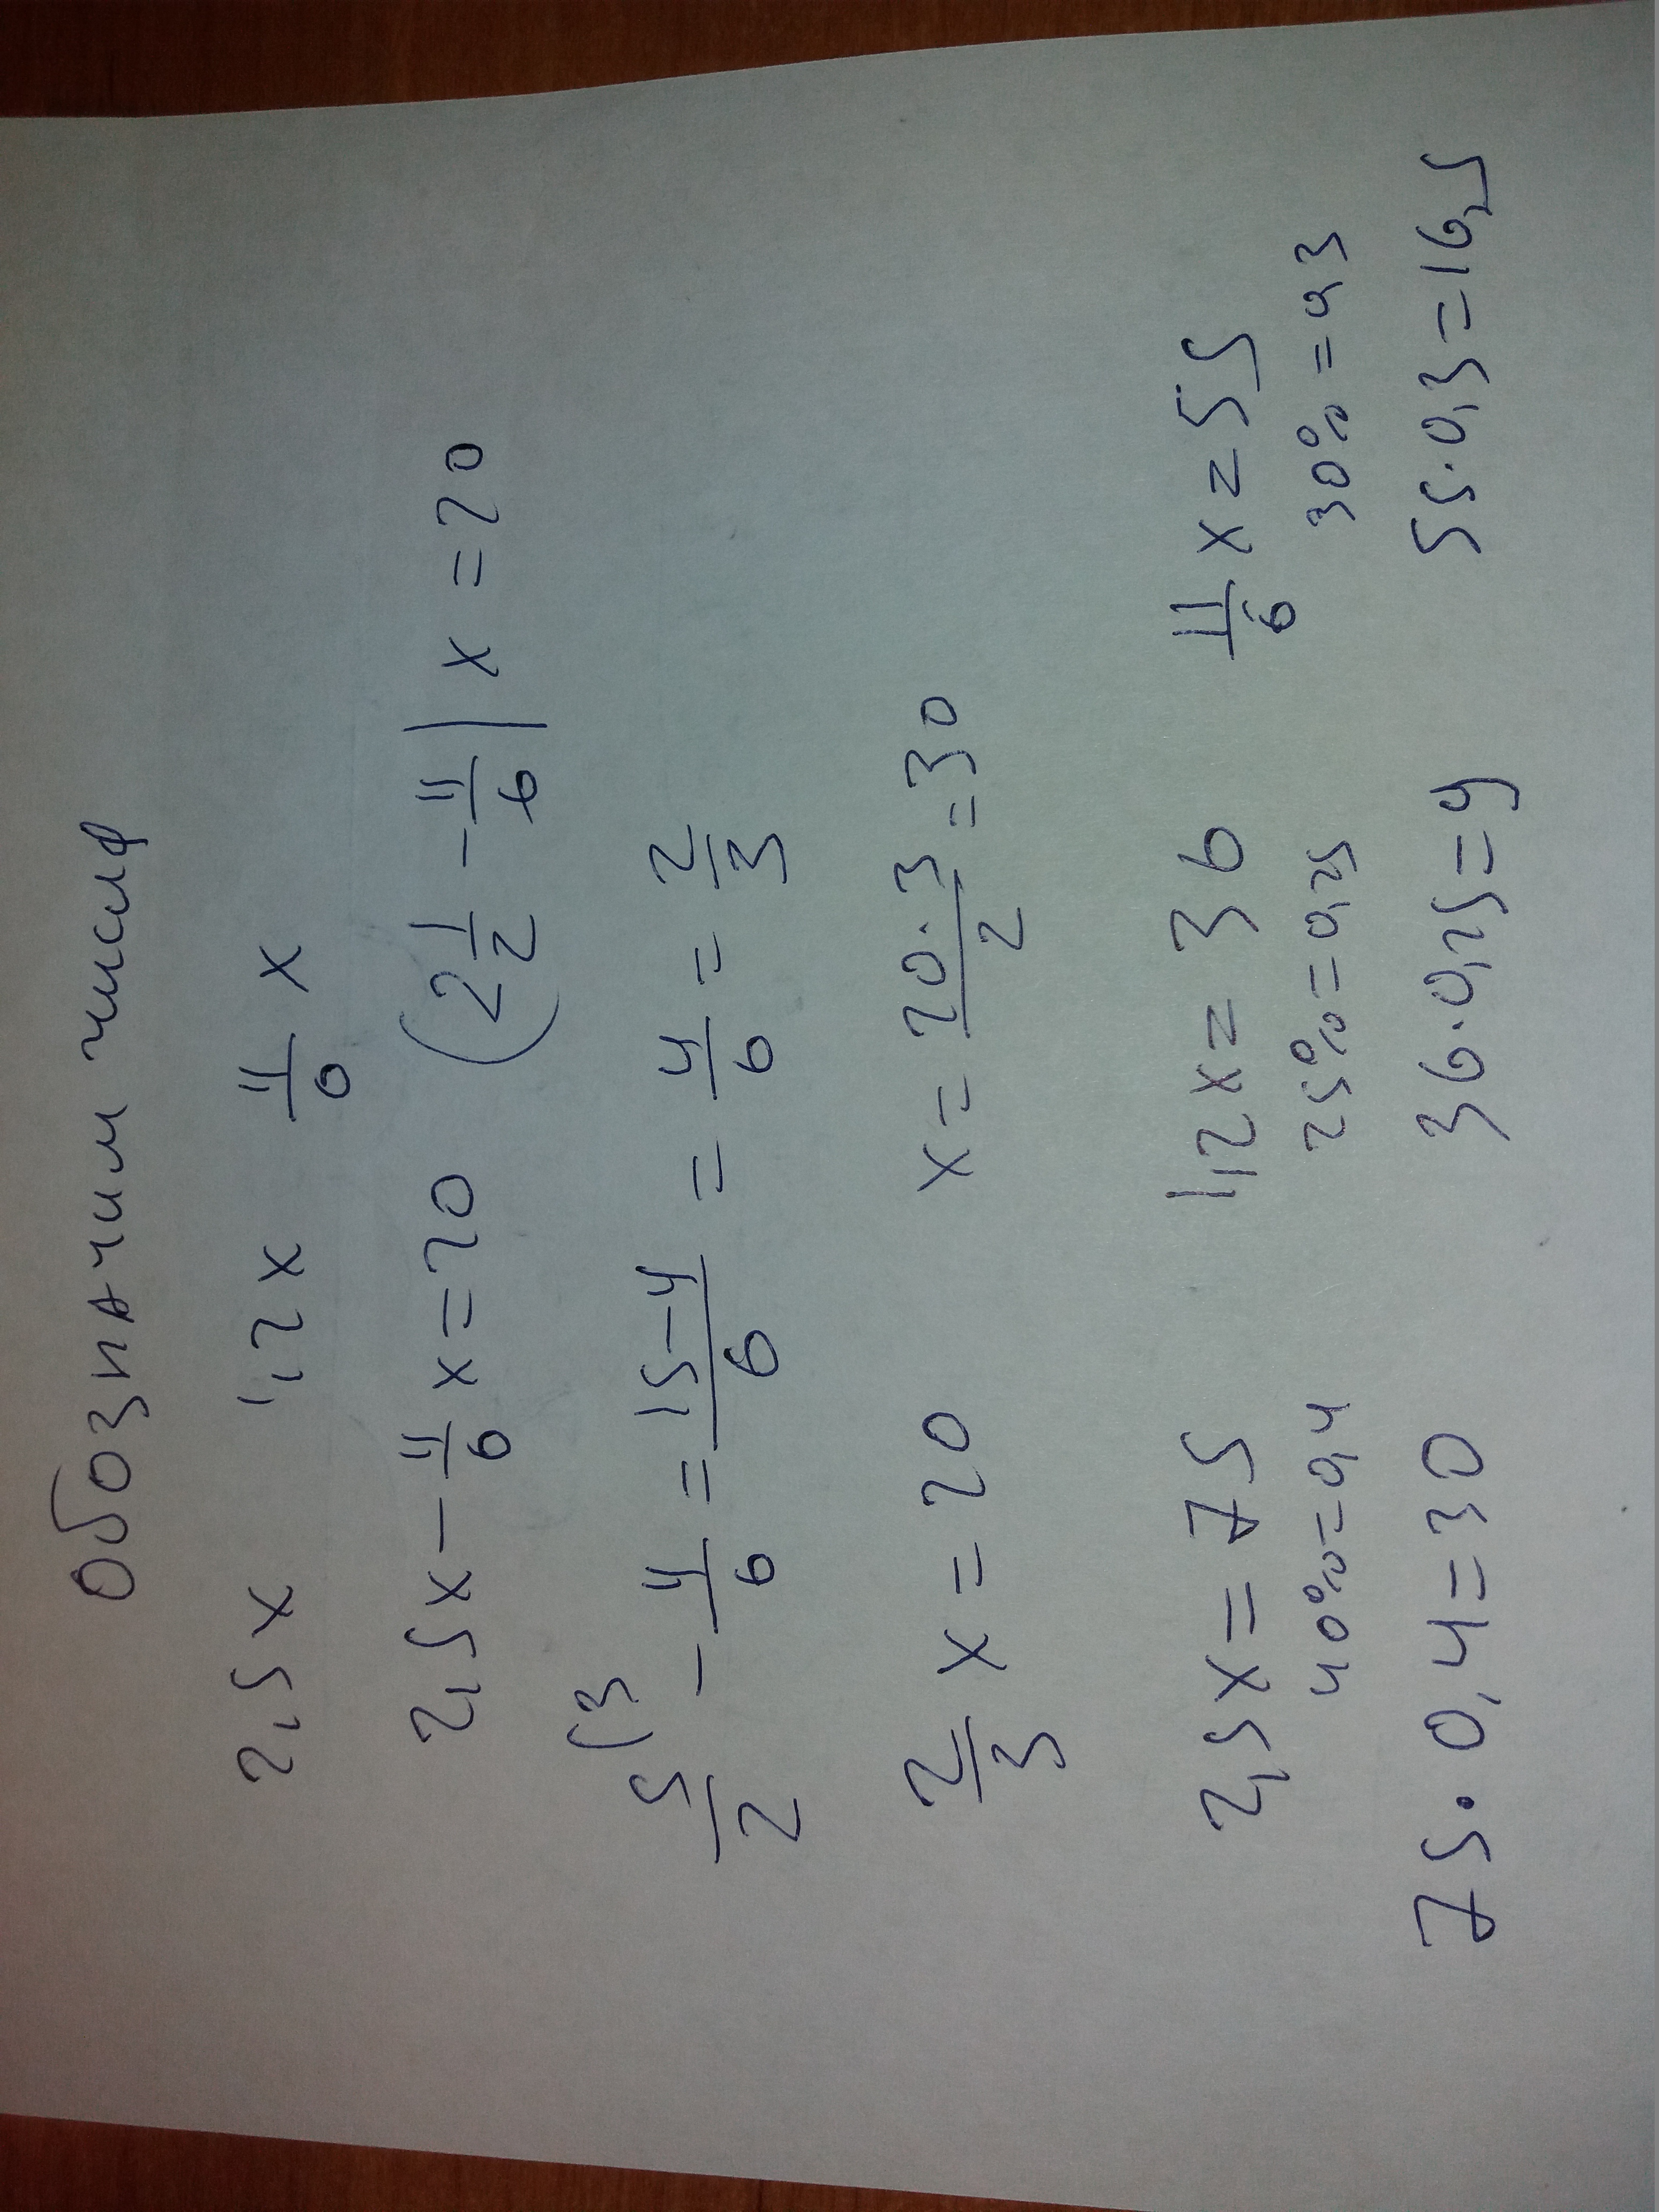 Обозначим числа
2,5x 1,2x 11/6 x
2,5x - 11/6 x = 20 (2 1/2 - 11/6) x = 20
5/2 (3 - 11/6 = 15-11/6 = 4/6 = 2/3
2/3 x = 20 x = 20·3/2 = 30
2,5x = 75 1,2x = 36 11/6 x = 55
40% = 0,4 25% = 0,25 30% = 0,3
75·0,4 = 30 36·0,25 = 9 55·0,3 = 16,5